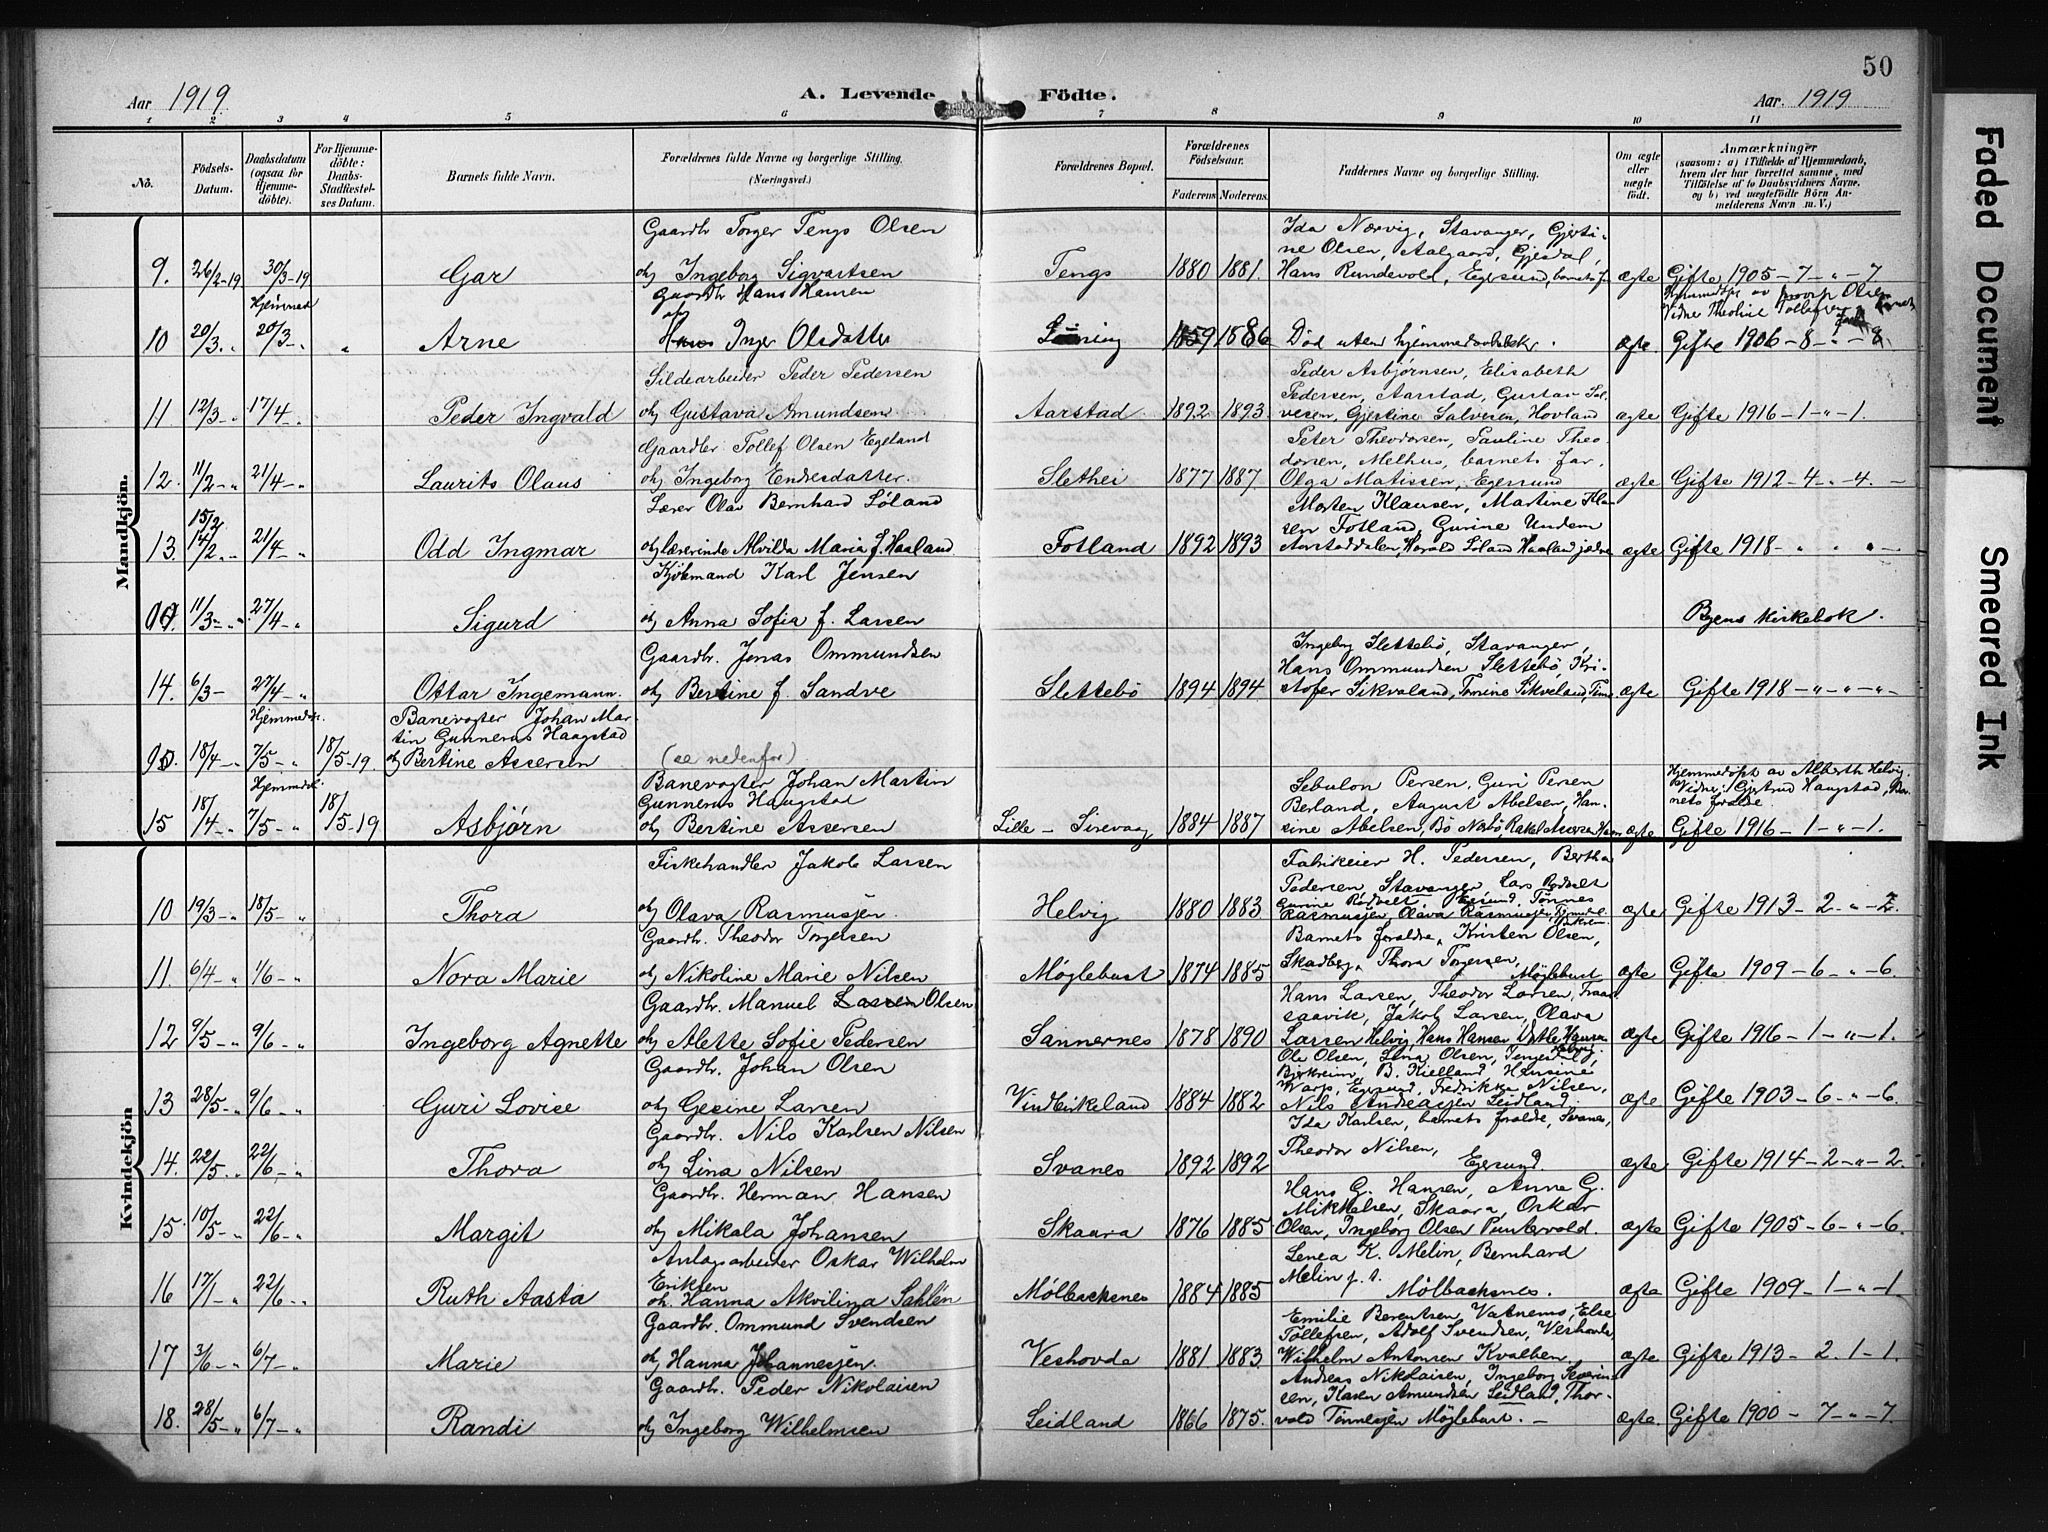 50
Aar 1919.
A. Levende Födte.
Aar. 1919
1 2 3 4 5 6 7 8 9 10 11
No.
Födsels-Datum.
Daabsdatum (ogsaa for Hjemme-döbte).
For Hjemme-döbte: Daabs-Stadfæstel-ses Datum.
Barnets fulde Navn.
Forældrenes fulde Navne og borgerlige Stilling. (Næringsvei.)
Forældrenes Bopæl.
Forældrenes Födselsaar.
Faderens Moderens.
Faddernes Navne og borgerlige Stilling.
Om ægte eller uægte födt.
Anmærkninger
(saasom: a) i Tilfælde af Hjemmedaab,
hvem der har forrettet samme, med
Tilföielse af to Daabsvidners Navne,
og b) ved uægtefödte Börn An-
melderens Navn m. V.)
Mandkjön.
Gaardbr Torger Tengs Olsen
Ida Nærvig, Stavanger, Gjerti-
ne Olsen, Aalgaard, Gjesdal,
9. 26/2-19 30/3-19 Gar og Ingeborg Sigvartsen Tengs 1880 1881. Hans Rundevold, Egersund, barnets far ægte Gifte 1905 – 7 – „ – 7
Hjemmed
Gaardbr Hans Hansen
og
Vidner Theoline Tollefsen
10 20/3 „ 20/3 – „ „ Arne Inger Olsdatter 1859 1886 Død uten hjemmedaabsbekr. ægte. Gifte 1906 – 8 – „ – 8
Sildearbeider Peder Pedersen
Peder Asbjørnsen, Elisabeth
Pedersen, Aarstad, Gustav Sal-
11. 12/3 – „ 17/4 – „ Peder Ingvald og Gustava Amundsen Aarstad 1892 1893. vesen, Gjertine Salvesen, Hovland ægte Gifte 1916 – 1 – „ – 1.
Gaardbr Tollef Olsen Egeland
Peter Theodorsen, Pauline Theo
dorsen, Melhus, barnets far,
12. 11/2 – „ 21/4 – „ Laurits Olaus og Ingeborg Endresdatter Slethei 1877 1887. Olga Matissen, Egersund ægte Gifte 1912 – 4 – „ – 4. –
Lærer Olav Bernhard Søland
Morten Klausen, Martine Klau
sen Fotland, Gurine Undem
15/2
13. 14/2 „ 21/4 – „ Odd Ingmar og lærerinde Alvilda Maria f. Haaland Fotland 1892 1893 Aarstaddalen, Harald Søland Haaland jædre ægte Gifte 1918 – „ „ „ –
Kjøbmand Karl Jensen
00. 11/3 – „ 27/4 – „ Sigurd og Anna Sofia f. Larsen Byens Kirkebok.
Gaardbr. Jonas Ommundsen
Ingeborg Slettebø, Stavanger,
Hans Ommundsen Slettebø, Kri-
14. 6/3 – 27/4 – „ Ottar Ingemann. og Bertine f. Sandve Slettebö 1894 1894 stofer Sikvaland, Tomine Sikveland, Time ægte Gifte 1918 – „ – „ – „ –
Hjemmedøbt.
Banevogter Johan Mar-
tin Gunnerus Haagstad
00. 18/4 – „ 7/5 – „ 18/5 – 19. og Bertine Assersen (se nedenfor)
Hjemmed.
Banevogter Johan Martin
Gunnerus Haugstad
Sebulon Persen, Guri Persen
Berland, August Abelsen, Han-
Hjemmedøpt av Alberth Helvig.
Vidne: Gjertrud Haugstad, Bar-
nets foraldre.
15 18/4 – „ 7/5 – „ 18/5 – 19 Asbjørn og Bertine Assersen Lille – Sirevaag 1884 1887 sine Abelsen, Bö Nærbö Rakel Assersen ægte Gifte 1916 – 1 – „ – 1.
Kvindekjön
Fiskehandler Jakob Larsen
Fabrikeier H. Pedersen, Bertha
Pedersen, Stavanger, Lars Rødselt
Gurine Rødselt, Egersund, Tønnes
10 19/3 – „ 18/5 – „ Thora og Olava Rasmussen. Helvig 1880 1883. Rasmussen, Olava Rasmussen, ægte Gifte 1913 – 2 – „ – 2.
Gaardbr. Theodor Torgersen
Barnets foraldre, Kristen Olsen,
Skadberg, Thora Torgersen,
11. 6/4 – „ 1/6 – „ Nora Marie og Nikoline Marie Nilsen Møglebust 1874 1885 Møglebust ægte Gifte 1909 – 6 – „ – 6.
Gaardbr. Manuel Larsen Olsen
Hans Larsen, Theodor Larsen,
saavik, Jakob Larsen, Olava
12 9/5 – „ 9/6 – „ Ingeborg Agnette og Alette Sofie Pedersen Sannernes 1878 1890 Larsen Helvig, Hans Hansen ægte Gifte 1916 – 1 – „ – 1.
Gaardbr. Johan Olsen
Ole Olsen, Lina Olsen, Tengesdal,
Bjerkreim, B. Kielland, Hansine
Warp, Egersund, Fredrikka Nilsen,
13 28/5 – „ 9/6 – „ Guri Lovise og Gesine Larsen Vindbirkeland 1884 1882 Nils Andreassen Seidland. ægte. Gifte 1903 – 6 – „ – 6.
Gaardbr. Nils Karlsen Nilsen
Ida Karlsen, barnets foraldre, Svanes,
14. 22/5 „ 22/6 – „ Thora og Lina Nilsen Svanes 1892 1892 Theodor Nilsen, Egersund. ægte Gifte 1914 – 2 – „ – 2.
Gaardbr. Herman Hansen
Hans G. Hansen, Anne G.
Mikkelsen, Skaara, Oskar
15 10/5 – „ 22/6 – „ Margit og Mikala Johansen Skaara 1876 1885 Olsen, Ingeborg Olsen Puntervold. ægte Gifte 1905 – 6 – „ – 6.
Anlagsarbeider Oskar Wilhelm
Eriksen
Lenea K. Melin, Bernhard
Melin p. t.
16 17/1 – „ 22/6 – „ Ruth Aasta og Hanna Akvilina Sahlén Mølbacksnes 1884 1885 Mølbacksnes. ægte Gifte 1909 – 1 – „ – 1.
Gaardbr. Ommund Svendsen
Emilie Berentsen, Vatnemo, Else
Tollefsen, Adolf Svendsen, Veshovda
17 3/6 – „ 6/7 – „ Marie og Hanna Johannessen. Veshovda 1881 1883. Wilhelm Antonsen Kvalben. ægte Gifte 1913 – 2 . 1 – 1.
Gaardbr. Peder Nikolaisen
Andreas Niklaisen, Ingeborg Severin
sen, Karen Amundsen Seidland, Thor-
18. 28/5 – „ 6/7 – „ Randi og Ingeborg Wilhelmsen Seidland 1866 1875. vald Tønnessen Møglebust. – ægte. Gifte 1900 – 7 – „ – 7.
Faded Document
Smeared Ink